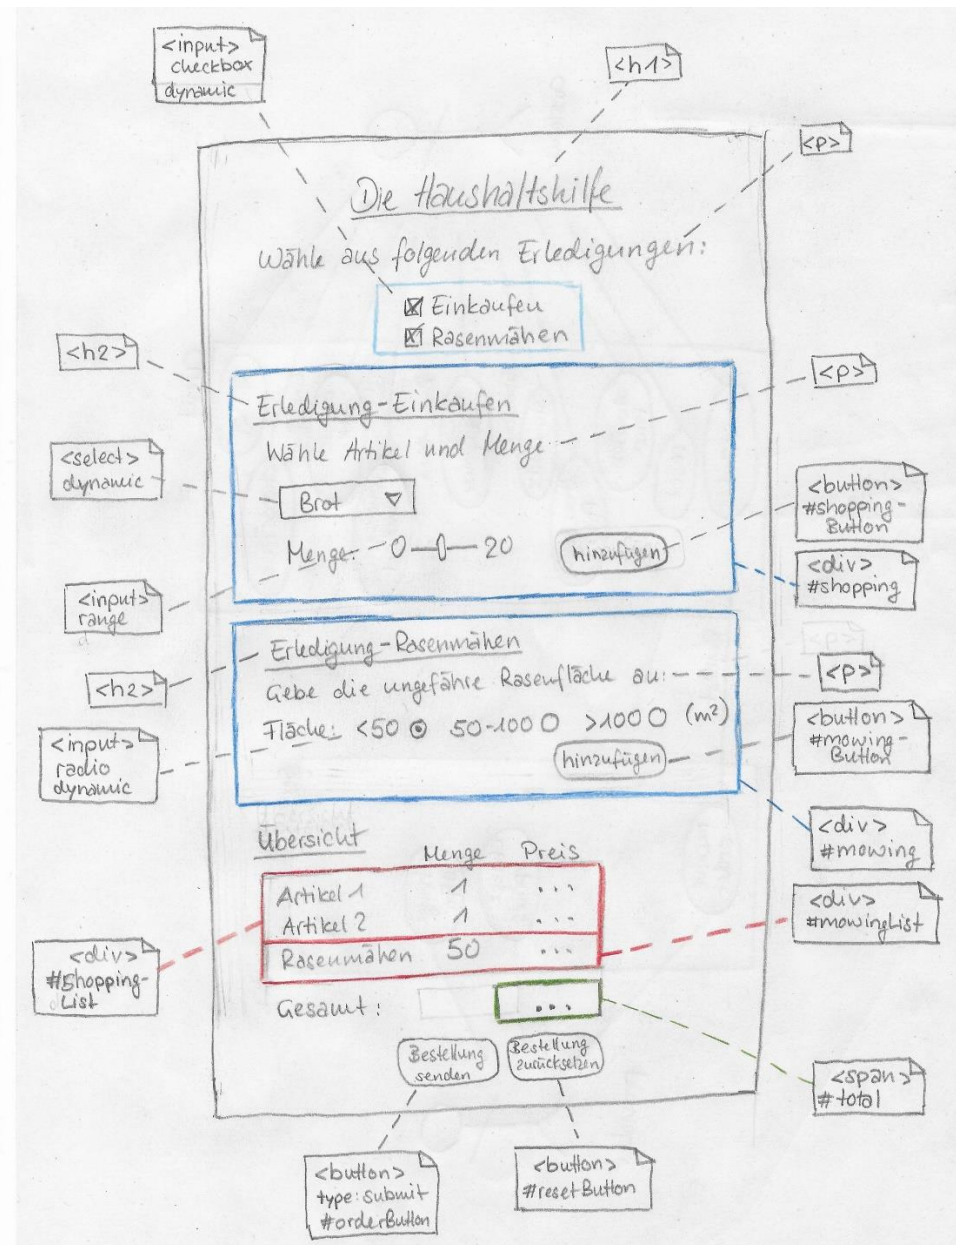 <input>
checkbox
dynamic
<h1>
<p>
Die Haushaltshilfe
Wähle aus folgenden Erledigungen:
Einkaufen
Rasenmähen
<h2>
<p>
Erledigung-Einkaufen
Wähle Artikel und Menge
<select>
dynamic
Brot
<button>
#shopping-
Button
Menge: 0 20
hinzufügen
<div>
#shopping
<input>
range
Erledigung-Rasenmähen
<h2>
Gebe die ungefähre Rasenfläche an:
<p>
Fläche: <50 50-100 >100 (m²)
<input>
radio
dynamic
<button>
#mowing-
Button
hinzufügen
<div>
#mowing
Übersicht
Menge Preis
Artikel 1 1 ...
Artikel 2 1 ...
Rasenmähen 50 ...
<div>
#mowingList
<div>
#Shopping-
List
Gesamt: ...
Bestellung
senden
Bestellung
zurücksetzen
<span>
#total
<button>
type: submit
#orderButton
<button>
#resetButton